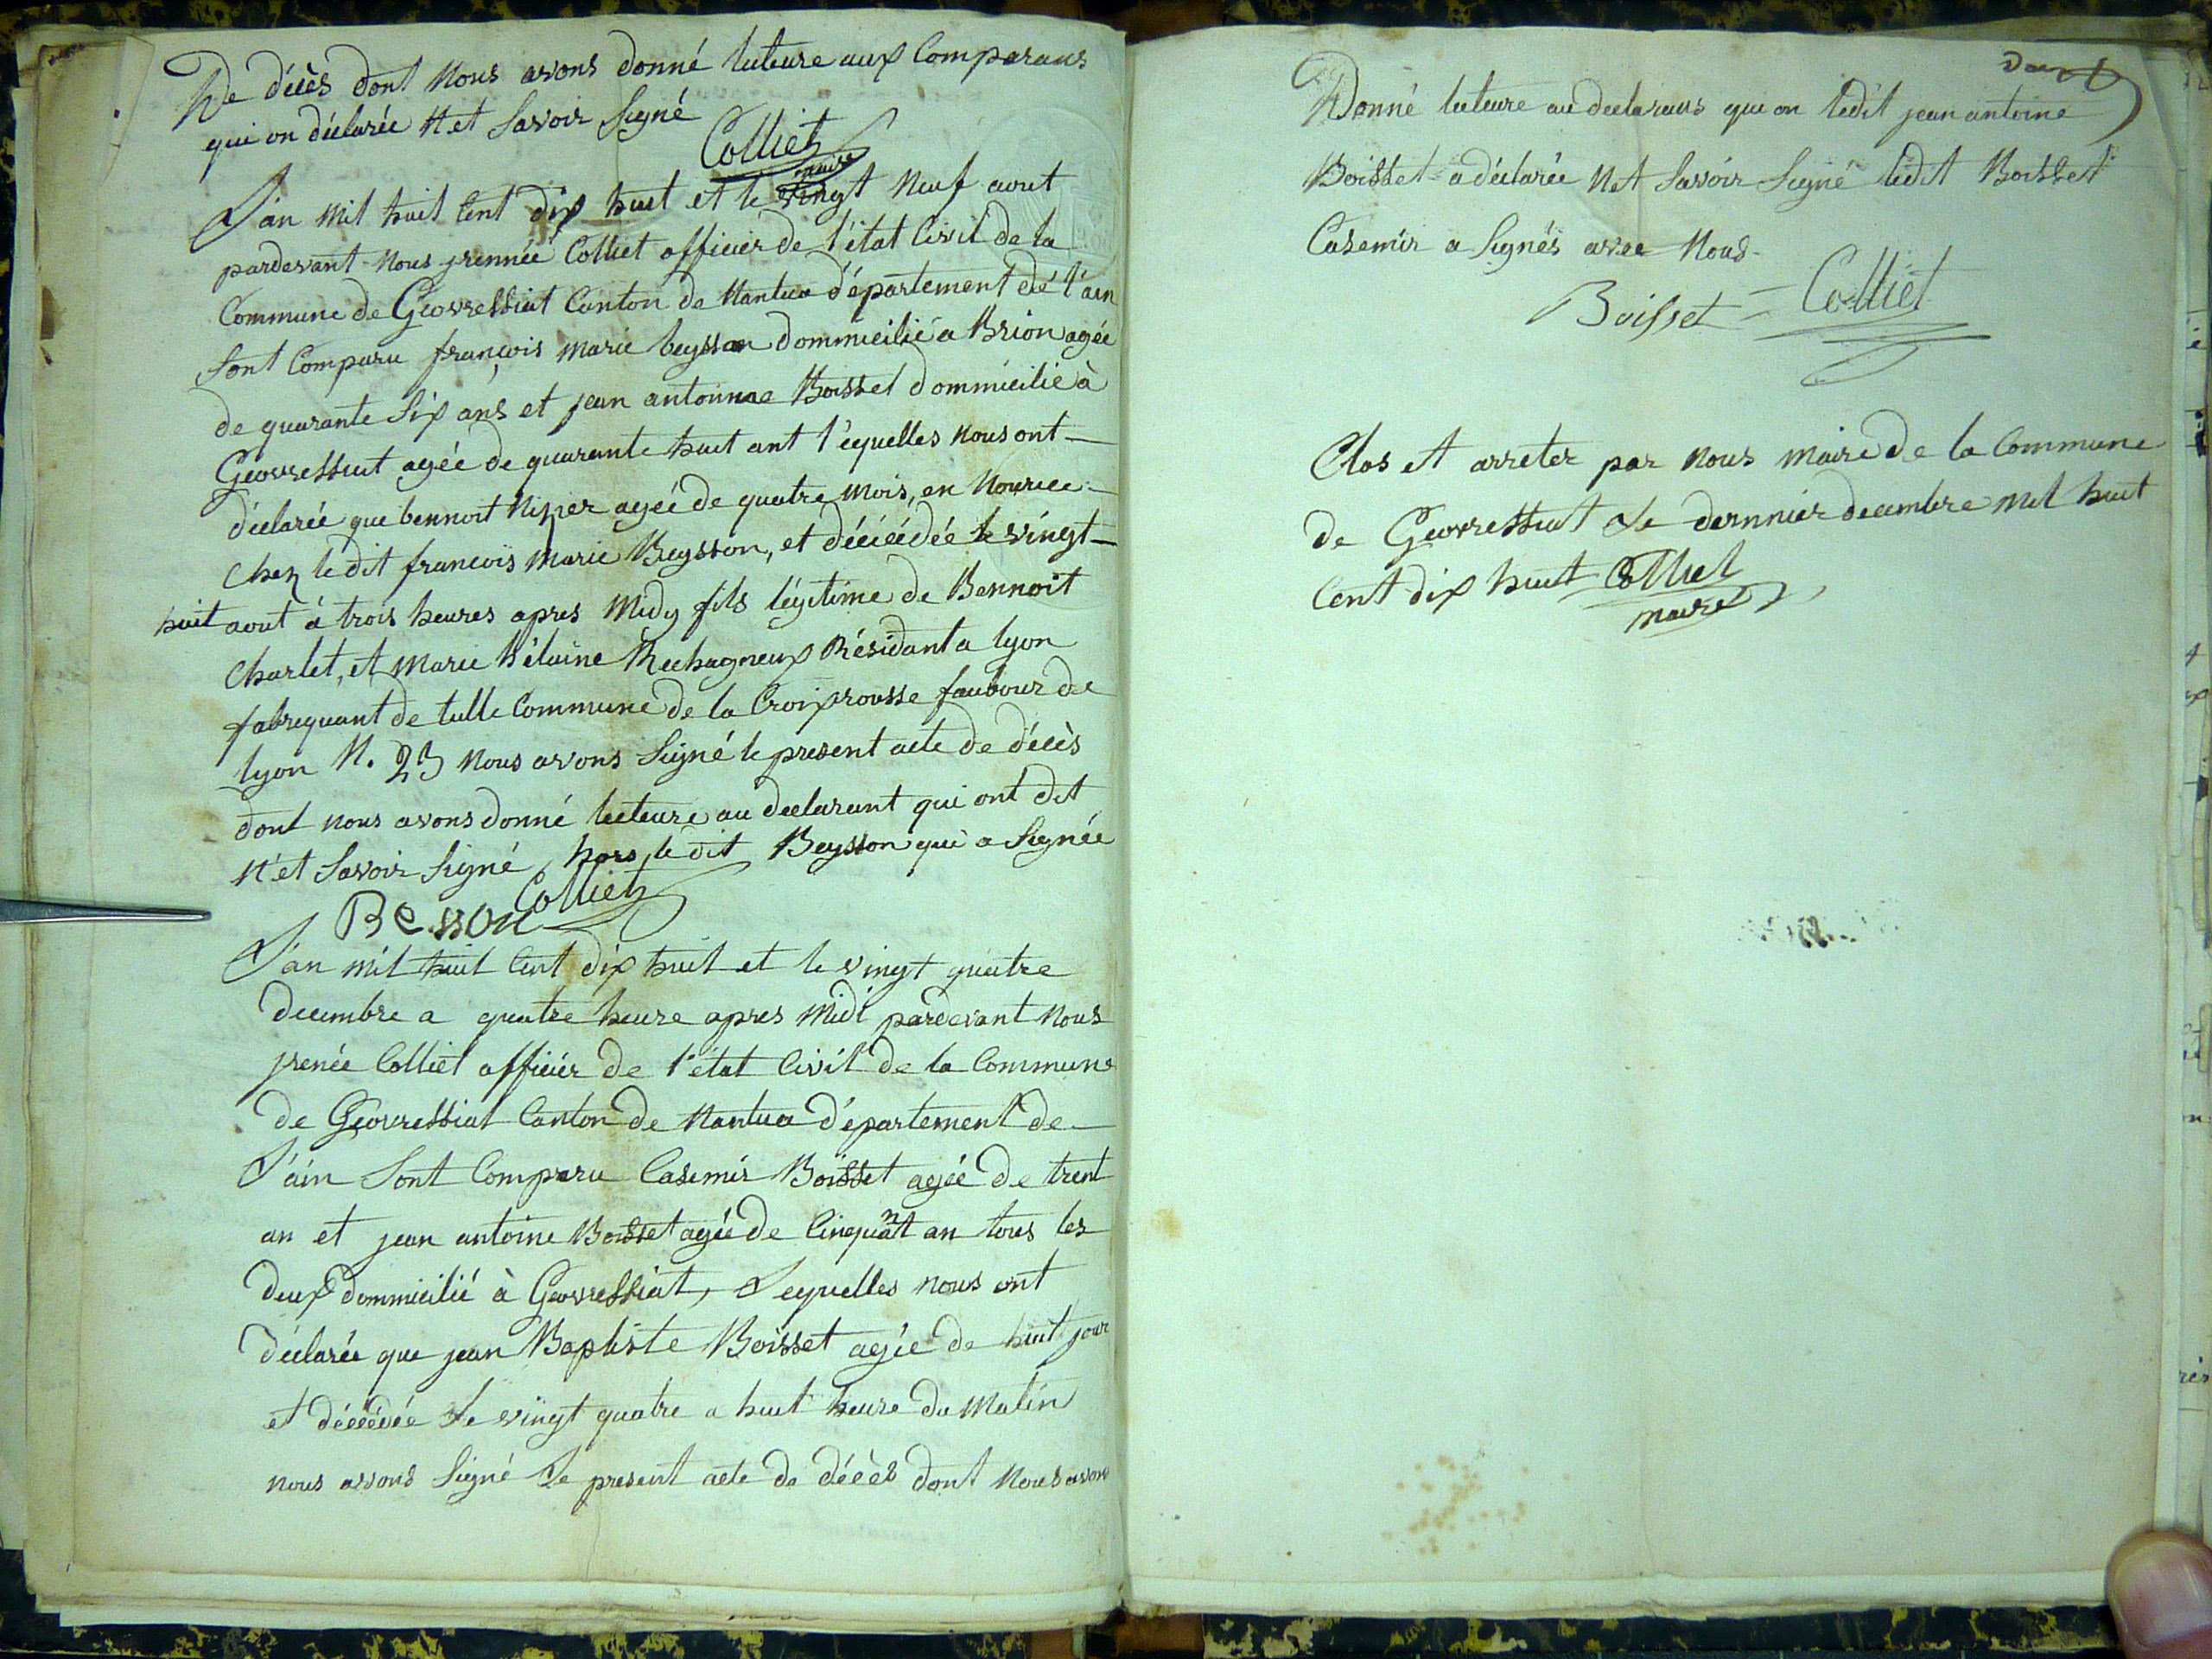 De décès dont Nous avons donné lecteure aux Comparans
qui on déclarée N et Savoir Signé
Colliet
maire
L'an Mil huit Cent dix huit et le vingt Neuf aout
pardevant Nous jrennée Colliet officier de l'état Civil de la
Commune de Geovressiat Canton de Nantua département de l'ain
Sont Comparu françois marie beysson dommicilié a Brion agée
de quarante Six ans et jean antoinne Boisset dommicilié à
Geovressiat agée de quarante huit ant l'equelles nous ont
déclarée que bennoit agée de quatre Mois, en Nourice
Chez le dit francois Marie Beysson, et décéédée le vingt
huit aout à trois heures apres Midy fils légitime de Bennoit
Charlet, et Marie hélaine Rechagneux Résidant a lyon
fabrequant de tulle Commune de la Croixrousse faubour de
lyon N. 23 Nous avons Signé le present acte de décès
dont nous avons donné lecteure au declarant qui ont dit
N'et Savoir Signé, hors le dit Beysson qui a Signée
Besson Colliet
L'an mil huit Cent dix huit et le vingt quatre
decembre a quatre heure apres Midi pardevant Nous
jrenée Colliet officier de l'état Civil de la Commune
de Geovressiat Canton de Nantua département de
L'ain Sont Comparu Casemir Boisset agée de trent
an et jean antoine Boisset agée de Cinquant an tous les
deux dommicilié à Geovressiat, Lequelles nous ont
déclarée que jean Baptiste Boisset agée de huit jour
et décéédée Le vingt quatre a huit heure du Matin
nous avons Signé Le present acte de décès dont Nous avons
Donné lecteure au declarans que on ledit jean antoine
Boisset a déclarée N et Savoir Signé ledit Boisset
Casemir a Signés avec Nous
Boisset = Colliet
Clos et arreter par Nous Maire de la Commune
de Geovressiat Le dernnier decembre Mil huit
Cent dix huit Colliet
maire